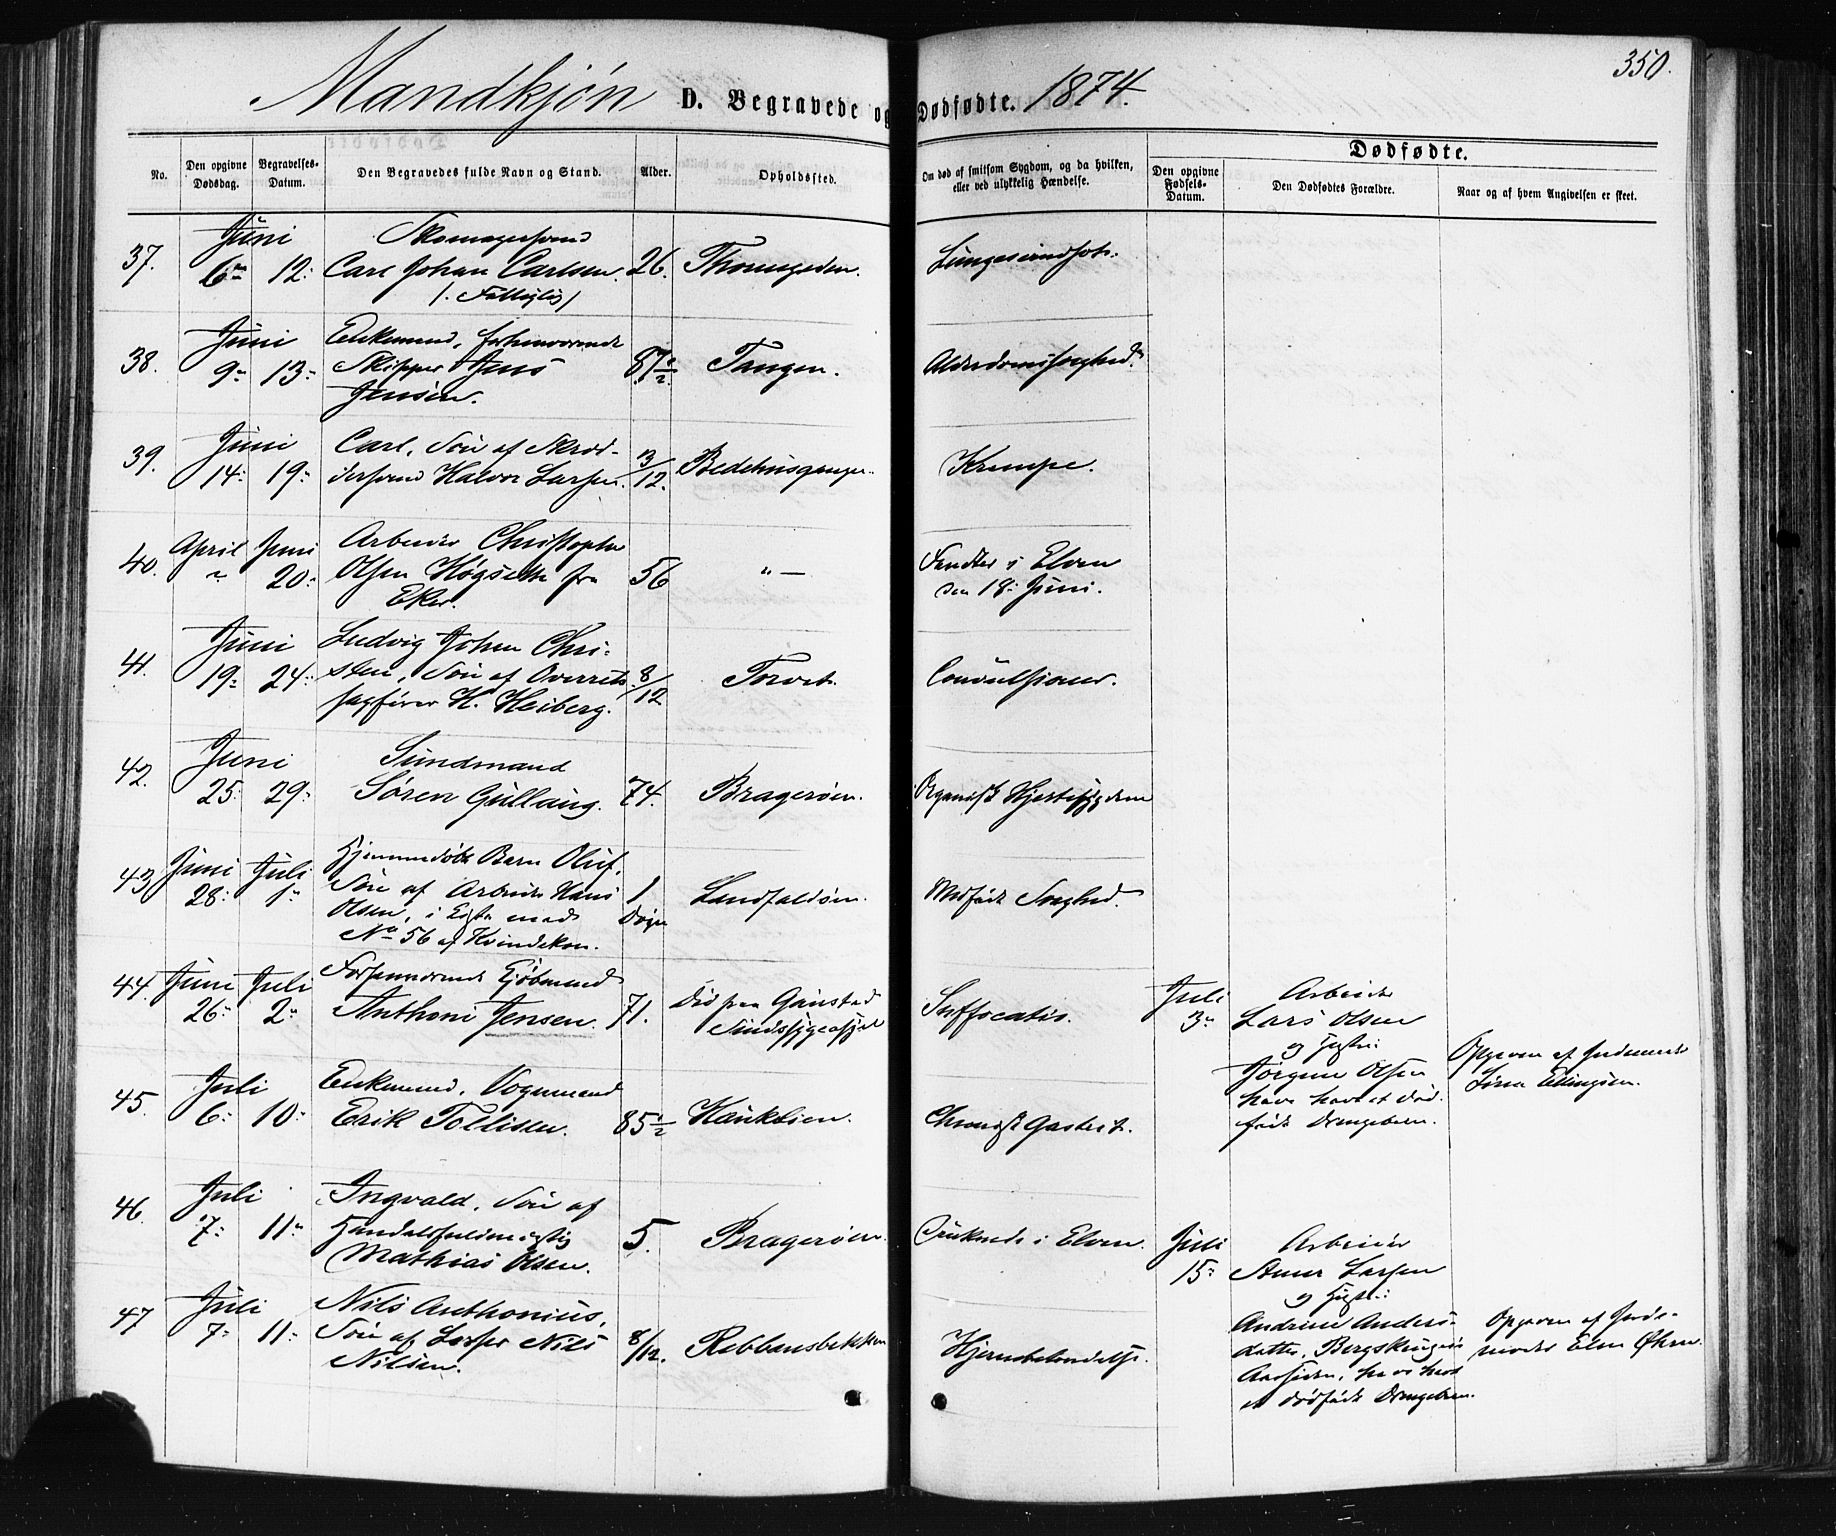 350.
Mandkjön D. Begravede og Dødfødte. 1874.
Dødfødte.
No.
Den opgivne Dødsdag.
Begravelses-Datum.
Den Begravedes fulde Navn og Stand.
Alder.
Opholdssted.
Om død af smitsom Sygdom, og da hvilken, eller ved ulykkelig Hændelse.
Den opgivne Fødsels-Datum.
Den Dødfødtes Forældre.
Naar og af hvem Angivelsen er skeet.
Juni Skomagersvend
37. 6te 12: Carl Johan Carlsen. 26. Lungesvindsot.
(: Fattiglig)
Juni Enkemand, forhenværende
38. 9- 13- Skipper Jens 87 1/2 Tangen. Alderdomssvaghed.
Jensen.
Juni Carl, Søn af Skræd-
39. 14: 19- dersvend Halvor Larsen. 3/12. Bedehusgangen. Krampe.
April Juni Arbeider Christopher
40. " 20: Olsen fra 56 " — Fundet i Elven
Eker. den 18: Juni.
Juni Ludvig Johan Chri-
41. 19- 24: sten, Søn af Overrets- 8/12 Torvet. Convulsioner.
sagfører H. Heiberg.
Juni Sundmand
42. 25: 29: Søren Gullaug. 74. Bragerøen. Organisk Hjertesygdom
Juni Juli Hjemmedøbt Barn Oluf,
43. 28: 1- Søn af Arbeider Hans 1 Landfaldøen. Medfødt Svaghed.
Olsen, i Egtesk. med Døgn
No 56 af Kvindekøn.
44. Juni Juli Forhenværende Kjøbmand
26- 2- Anthoni Jensen. 71. Død paa Gaustad Sindssygeasyl Suffocatio.
Juli 3-
Arbeider
Lars Olsen
og Hustru
Jørgine Olsen
have havt et død-
født Drengebarn.
Opgiven af Jordemoder
Juli Enkemand, Vognmand
45. 6- 10- Erik Tollisen. 85 1/2 Haukliien. Chronisk Gastrit.
Juli Ingvald, Søn af
46. 7- 11- Handelsfuldmægtig 5. Bragerøen. Druknede i Elven.
Mathias Olsen.
Juli 15-
Arbeider
Larsen
og Hustru
Andrine Anders-
datter,
have havt
et dødfødt Drengebarn.
Opgiven af Jorde-
moder
Juli Nils Anthonius,
47 7- 11- Søn af Nils 8/12. Hjernebetændelse.
Nilsen.